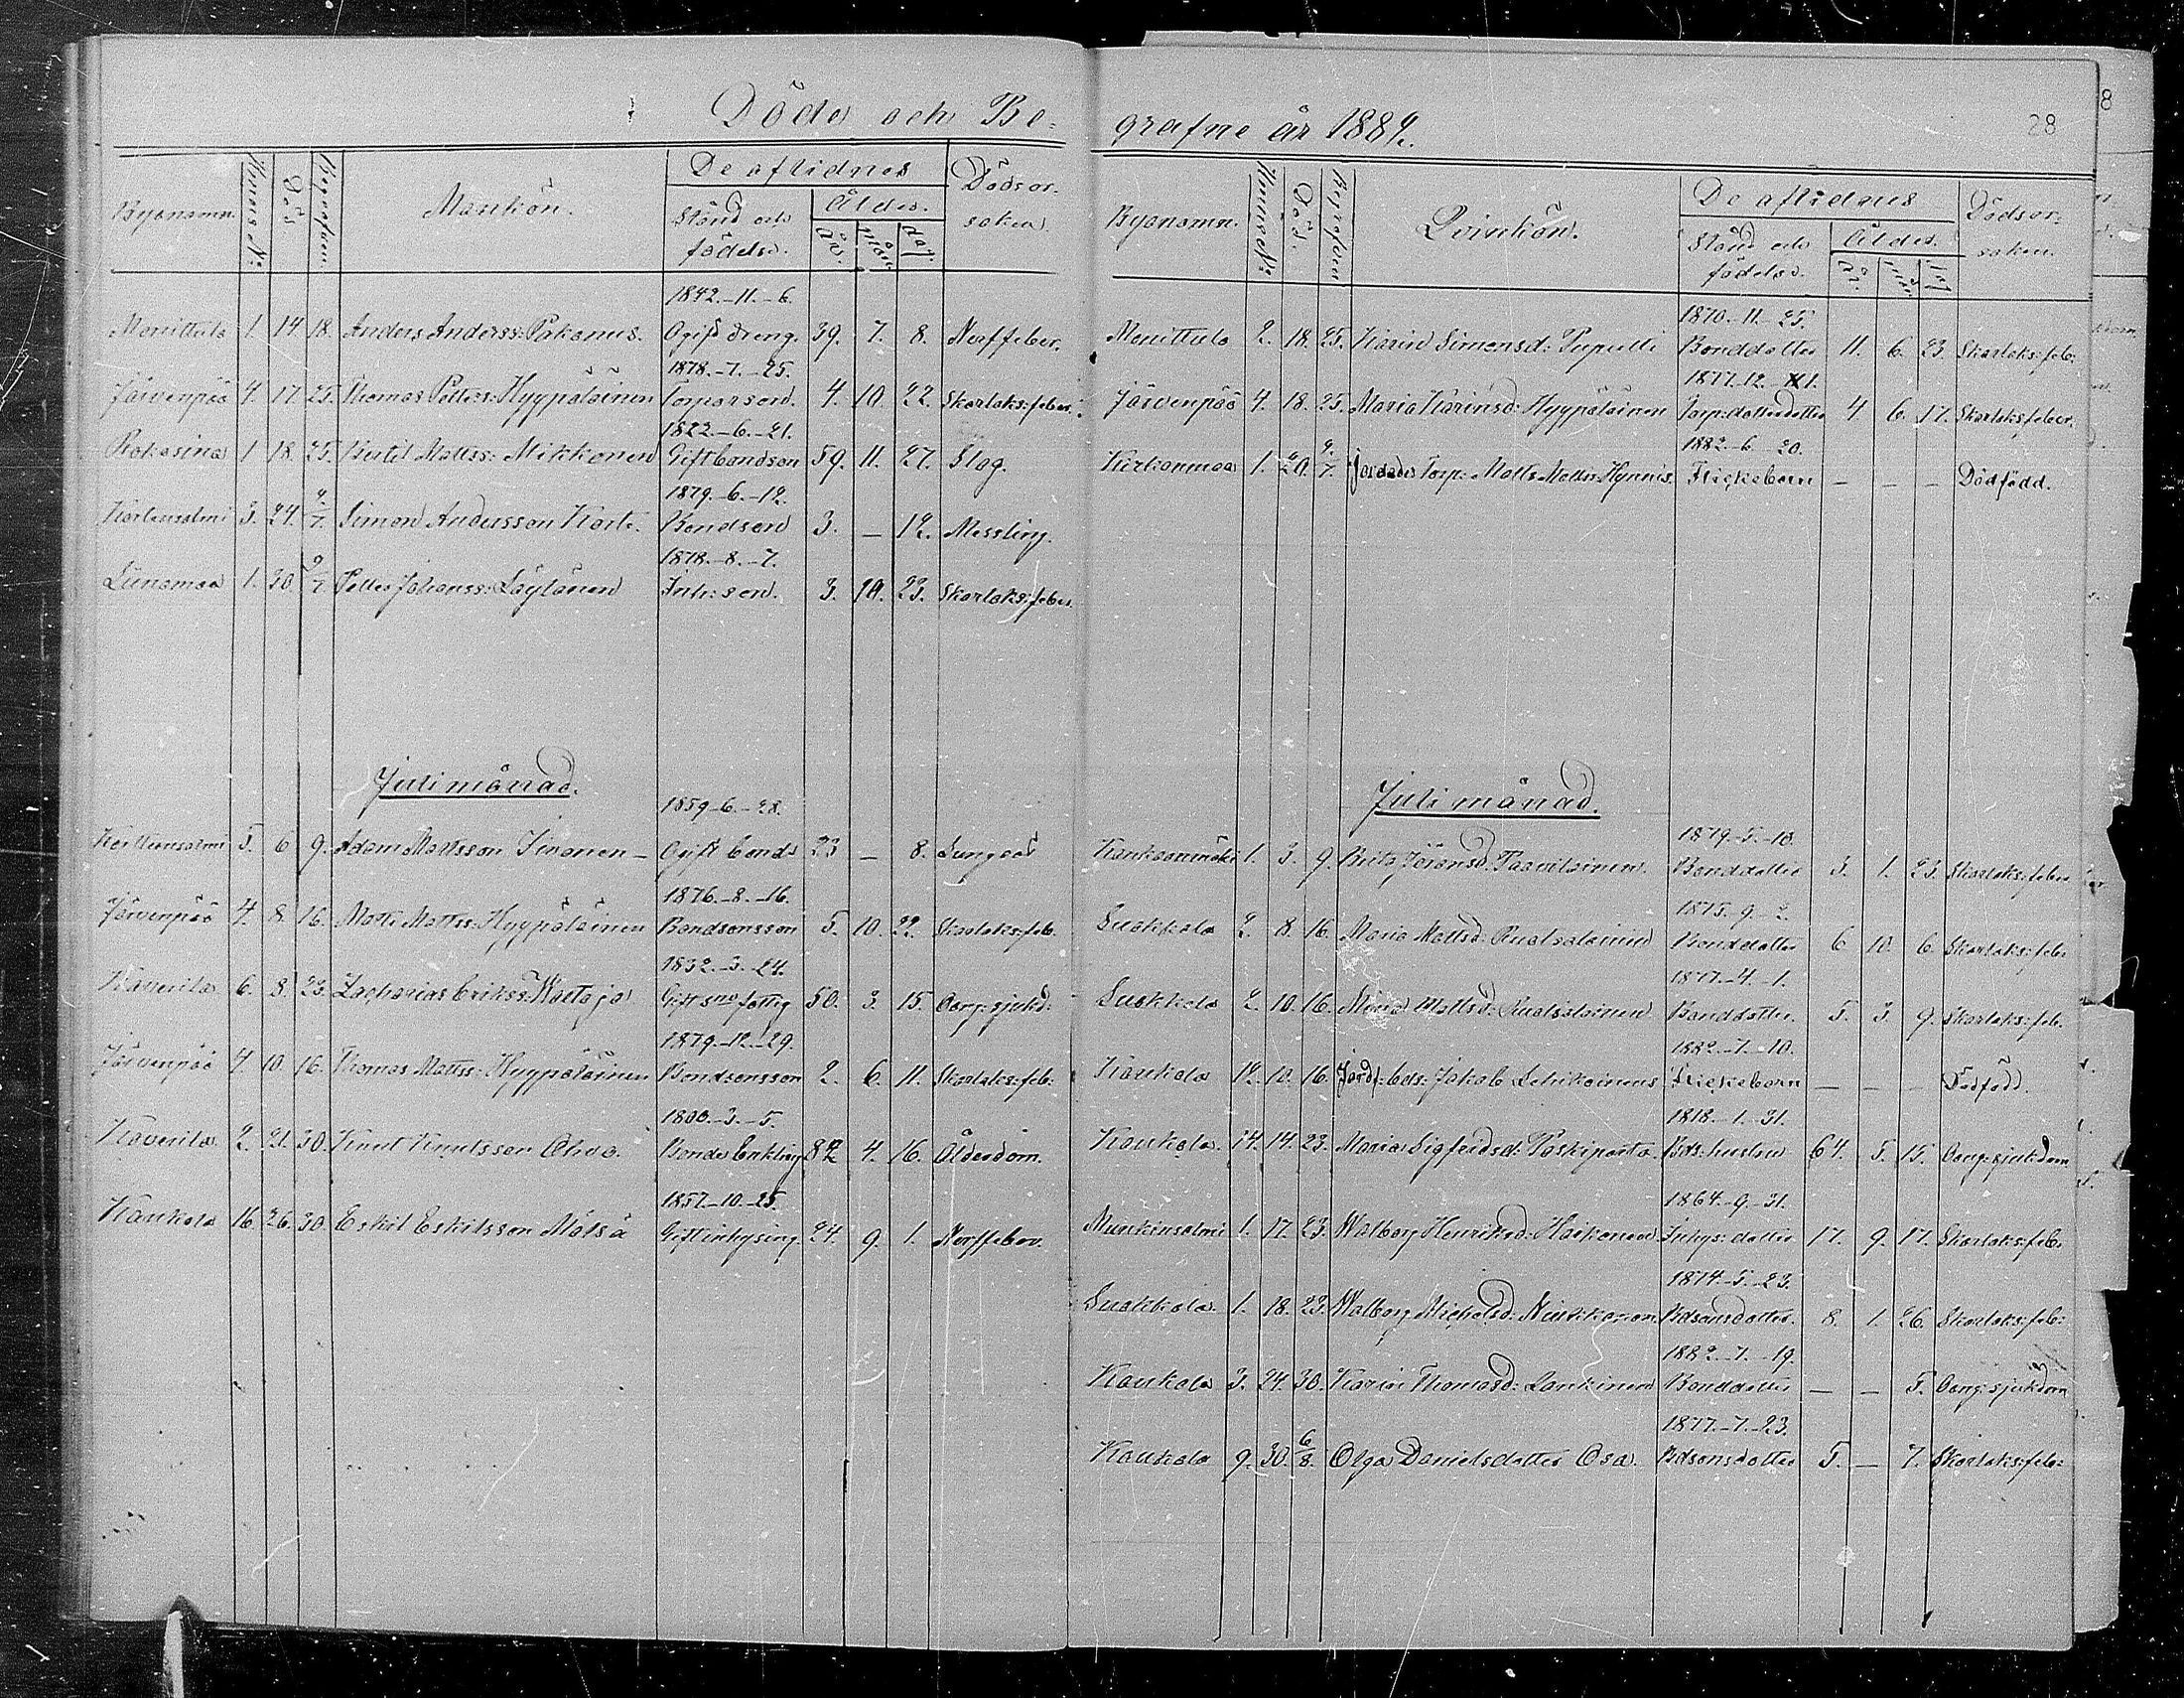 Döde och Be-
Byanamn. Hemm: No: Död Begrafven. Mankön. De aflidnes Stånd och födelse. Ålder. år. mån. dag. Dödsorsaken.
1842.-11.-6.
Monittula 1. 14 18. Anders Anderss: Pakanus. Ogift dreng. 39. 7. 8. Nerffeber.
1878.-7.-25.
Järvenpää 4. 17. 25. Thomas Petters: Hyypäläinen Torparson. 4. 10. 22. Skarlaks:feber.
1822.-6.-21.
1. 18. 25. Bertil Matts: Mikkonen Gift bondson 59. 11. 27. Slag.
1879.-6.-12.
Kortensalmi 3. 24. 9/7. Simon Andersson Korte. Bondson 3. – 12. Messling.
1878.-8.-7.
1. 30 9/7 Petter Johanss: Löytönen Inh: son. 3. 10. 23. Skarlaks:feber
Juli månad.
1859-6.-28.
5. 6 9. Adam Mattsson Iivonen – Ogift bonde 23 – 8. Lungsot
1876.-8.-16.
Järvenpää 4. 8. 16. Matts Mattss: Hyypäläinen Bondsonsson 5. 10. 22. Skarlaks:feb.
1832.-3.-24.
Kaverila 6. 8. 23. Zacharias Erikss: Wattaja Gift fattig 50. 3. 15. Oang:sjukd:
1879.-12.-29.
Järvenpää 4. 10. 16. Thomas Mattss: Hyypäläinen Bondsonsson 2. 6. 11. Skarlaks:feb:
1800.-3.-5.
Kaverila 2. 21. 30. Knut Knutsson Ohvo. Bonde Enkling 82 4. 16. Ålderdom.
1857.-10.-25.
Kaukola 16. 26. 30. Eskil Eskilsson Mätsä Gift inhysing. 24. 9. 1. Nerffeber.
grafne år 1882.
28
Byanamn. Hemm: No: Död. Begrafven Qvinkön. De aflidnes Stånd och födelse. Ålder. år. mån. dag Dödsorsaken.
1870.-11.-25.
Monittula 2. 18. 25. Karin Simonsd: Pupulli Bonddotter 11. 6. 23. Skarlaks:feb:
1877.-12.-1.
Järvenpää 4. 18. 25. Maria Karinsd: Hyypäläinen Torp:dotterdotter 4 6. 17. Skarlaksfeber.
1882.-6.-20.
1. 20. 2/7. Torp: Matts Matts: Hynnis. Flickebarn – – – Dödfödd.
Juli månad.
1879.-5.-10.
1. 3. 9. Brita Jöransd: Paavilainen. Bonddotter 3. 1. 23. Skarlaks:feber
1875.-9.-2.
Suokkola 2. 8. 16. Maria Mattsd: Ruatsalainen Bonddotter 6 10. 6. Skarlaks:feb:
1877.-4.-1.
Suokkola 2. 10. 16. Mattsd: Ruatsalainen Bonddotter. 5. 3. 9. Skarlaks:feb.
1882.-7.-10.
Kaukola 12. 10. 16. Bds: Jakob Lehikoinens Flickebarn – – – Dödfödd.
1818.-1.-31.
Kaukola. 14. 14. 23. Maria Sigfridsd: Paskiparta. Bds: hustru 64. 5. 15. Oang:sjukdom
1864.-9.-31.
1. 17. 23. Walborg Henriksd: Haikonen. Inhys: dotter 17. 9. 17. Skarlaks:feb.
1874.-5.-23.
Suokkola. 1. 18. 23. Walborg Michelsd: Niukkonen Bdsonsdotter. 8. 1. 26. Skarlaks:feb:
1882.-7.-19.
Kaukola 3. 24. 30. Karin Thomasd: Lankinen Bonddotter – – 5. Oang:sjukdom
1877.-7.-23.
Kaukola 9. 30. 6/8. Olga Danielsdotter Osa. Bdsonsdotter 5. – 7. Skarlaks:feb: